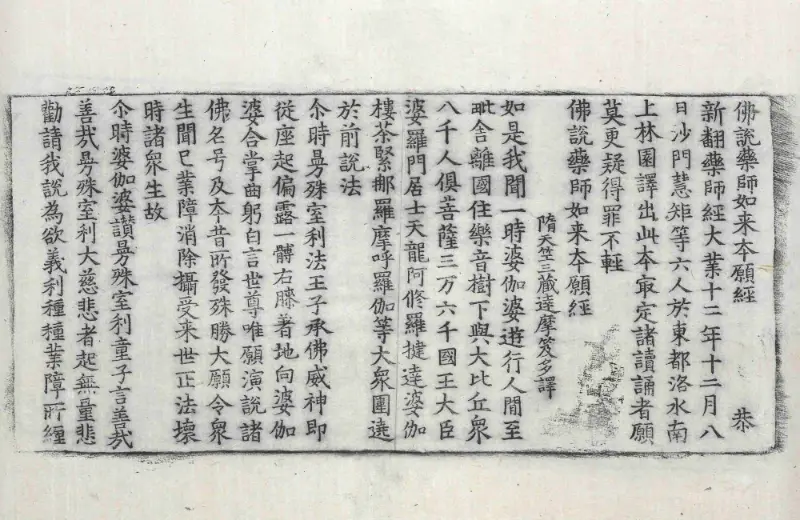 佛說藥師如来夲願經 恭
新翻藥師經大業十二年十二月八
日沙門慧矩等六人於東都洛水南
上林園譯出此夲㝡定諸讀誦者願
莫更疑得罪不輕
佛說藥師如来夲願經
隋天竺三藏達摩笈多譯
如是我聞一時婆伽婆遊行人間至
毗舍離國住樂音樹下與大比丘衆
八千人俱菩薩三万六千國王大臣
婆羅門居士天龍阿修羅揵達婆伽
樓茶緊那羅摩呼羅伽等大衆圍遶
於前說法
尒時曼殊室利法王子承佛威神即
從座起偏露一髆右膝著地向婆伽
婆合掌曲躬白言世尊唯願演說諸
佛名号及夲昔所發殊勝大願令衆
生聞已業障消除攝受来世正法壞
時諸衆生故
尒時婆伽婆讃曼殊室利童子言善㢤
善㢤曼殊室利大慈悲者起無量悲
勸請我說為欲義利種種業障所纏